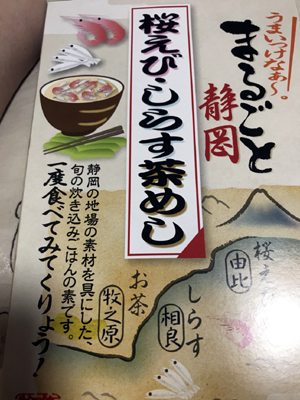 うまいっけなぁ〜。
まるごと
静岡
桜えび・しらす茶めし
静岡の地場の素材を具にした、
旬の炊き込みごはんの素です。
一度食べてみてくりょう!
桜え
由比
しらす
相良
お茶
牧之原